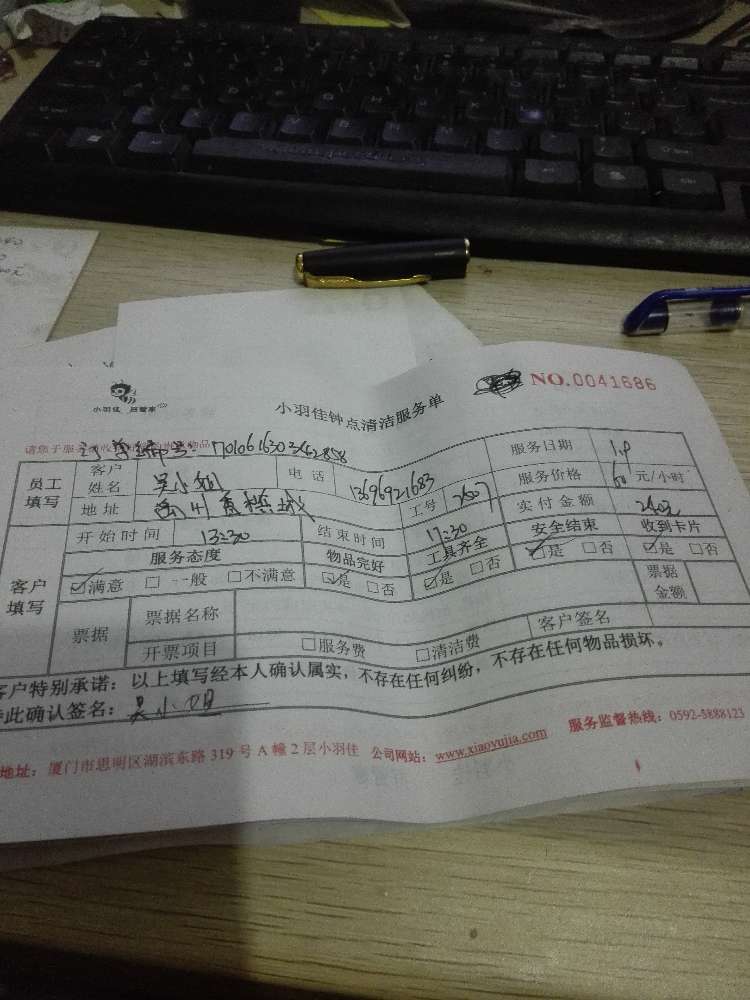 小羽佳 巨管家
小羽佳钟点清洁服务单
NO.0041686
订单编号:
员工填写 客户姓名 吴小姐 电话 13696921683 服务日期 1.9 服务价格 60元/小时
地址 工号 2607 实付金额 240元
客户填写 开始时间 13:30 结束时间 17:30 安全结束 收到卡片
服务态度 物品完好 工具齐全 ☑是 □否 ☑是 □否
☑满意 □一般 □不满意 ☑是 □否 ☑是 □否
票据 票据名称 票据金额
开票项目 □服务费 □清洁费 客户签名
客户特别承诺:以上填写经本人确认属实,不存在任何纠纷,不存在任何物品损坏。
特此确认签名:吴小姐
地址:厦门市思明区湖滨东路319号A幢2层小羽佳 公司网站:www.xiaoyujia.com 服务监督热线:0592-5888123